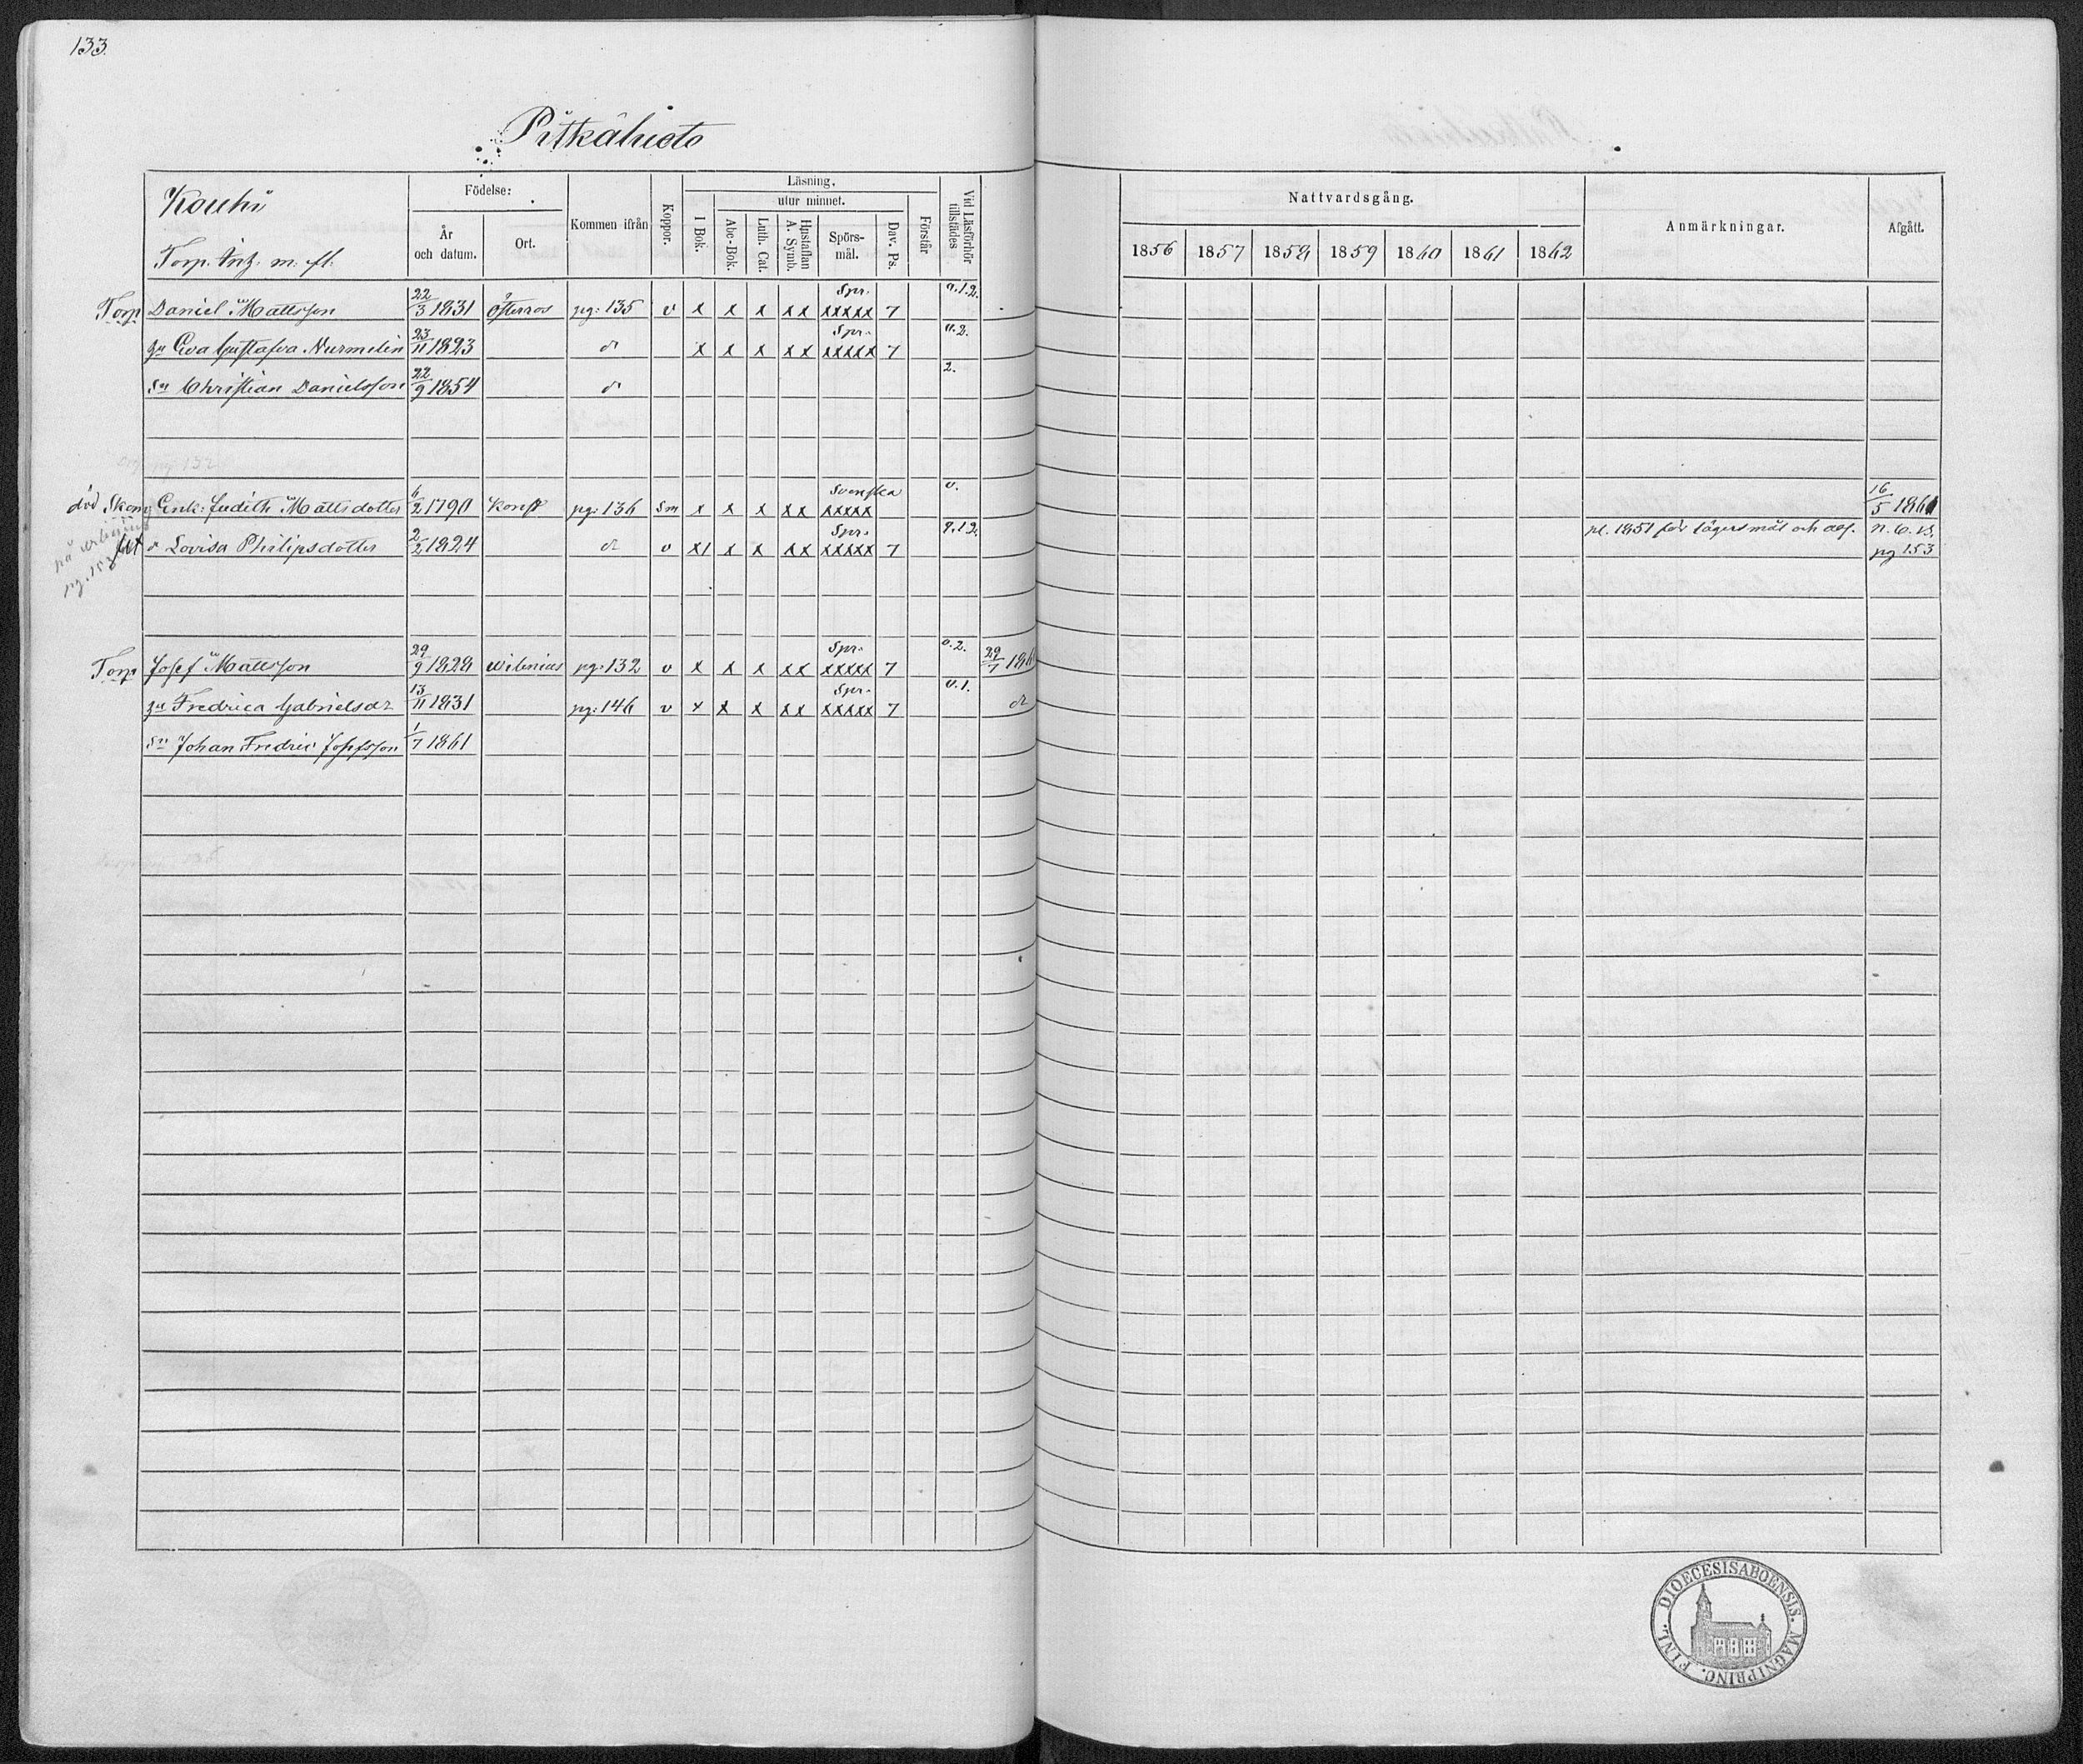 133.
Pitkäluoto
Kouhi
Torp. Inh. m. fl.
Födelse:
År och datum.
Ort.
Kommen ifrån
Koppor.
Läsning.
utur minnet.
I Bok.
Abc-Bok.
Luth. Cat.
Hustaflan A. Symb.
Spörs-mål.
Dav. Ps.
Förstår
Vid Läsförhör tillstädes
Nattvardsgång.
1856 1857 1858 1859 1860 1861 1862
Anmärkningar.
Afgått.
Torp Daniel Mattsson 22/3 1831 pg: 135 v x x x xx Spr. xxxxx 7 0.1.2.
hu Eva Gustafva Nurmelin 23/11 1823 d:o x x x xx Spr. xxxxx 7 0.2.
Sn Christian Danielsson 22/9 1854 d:o 2.
död Enk: Judith Mattsdotter 6/2 1790 pg: 136 Sm x x x xx Svenska xxxxx 0. 16/5 1861
d Lovisa Philipsdotter 2/2 1824 d:o v x1 x x xx Spr. xxxxx 7 pl. 1851 för lägersmål och abs. N. C. B. pg 153
Torp Josef Mattsson 29/9 1828 pg: 132 v x x x xx Spr. xxxxx 7 0.2. 29/7
hu Fredrica Gabrielsdr 13/11 1831 pg: 146 v x x x xx Spr. xxxxx 7 0.1. d:o
Sn Johan Fredric Josefsson 1/7 1861
DIOECESIS ABOENSIS. MAGNI PRINC. FINL.